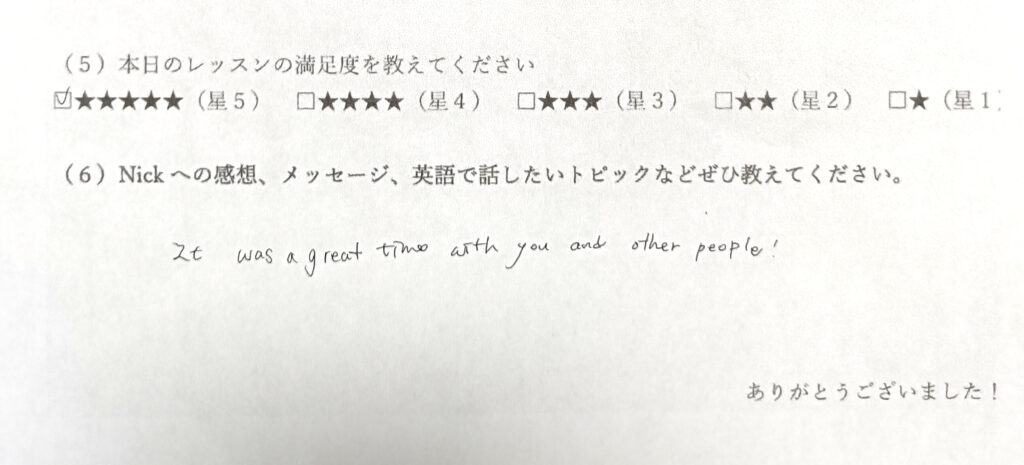 (5)本日のレッスンの満足度を教えてください
☑★★★★★(星5) □★★★★(星4) □★★★(星3) □★★(星2) □★(星1)
(6)Nickへの感想、メッセージ、英語で話したいトピックなどぜひ教えてください。
It was a great time with you and other people!
ありがとうございました!